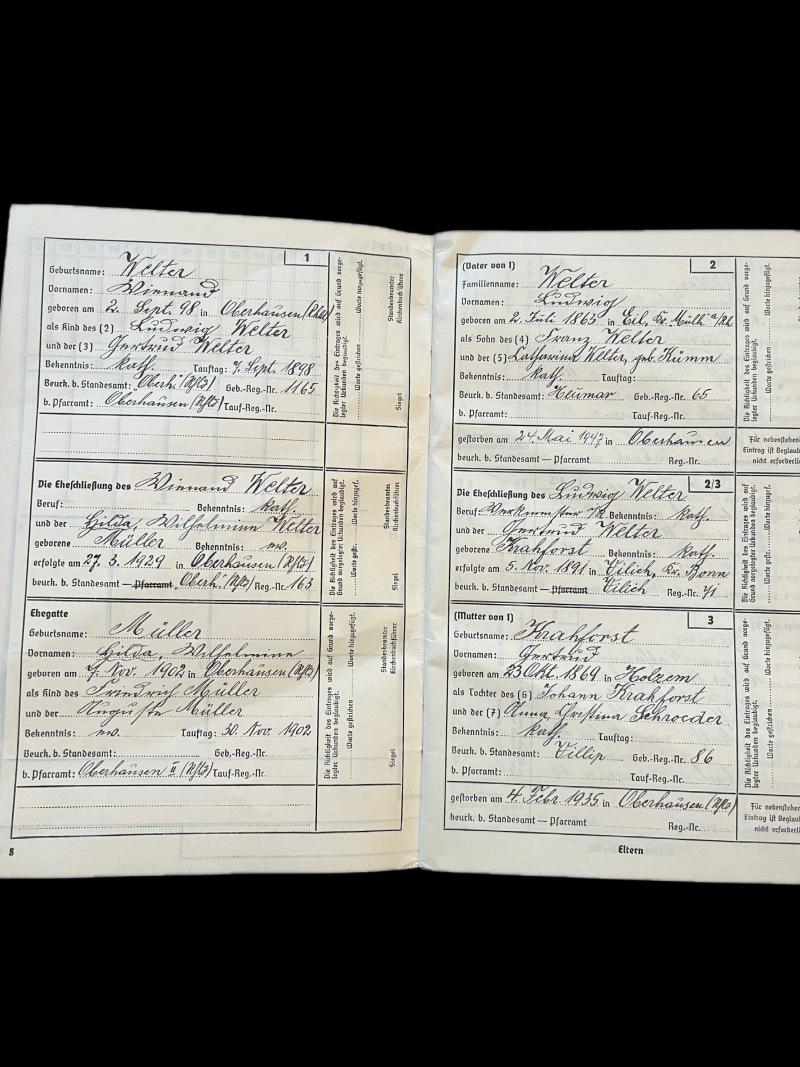 1
Geburtsname: Welter
Vornamen: Wienand
geboren am 2. Sept. 98 in Oberhausen (Rhld)
als Kind des (2) Ludwig Welter
und der (3) Gertrud Welter
Bekenntnis: kath. Tauftag: 7. Sept. 1898
Beurk. b. Standesamt: Oberh. (Rhld) Geb.-Reg.-Nr. 1165
b. Pfarramt: Oberhausen (Rhld) Tauf-Reg.-Nr.
Die Richtigkeit des Eintrages wird auf Grund vorge-
legter Urkunden beglaubigt.
Worte gestrichen Worte hinzugefügt.
Siegel Standesbeamter
Kirchenbuchführer
Die Eheschließung des Wienand Welter
Beruf: Bekenntnis: kath.
und der Hilda, Wilhelmine Welter
geborene Müller Bekenntnis: ev.
erfolgte am 27. 3. 1929 in Oberhausen (Rhld)
beurk. b. Standesamt — Pfarramt Oberh. (Rhld) Reg.-Nr. 163
Die Richtigkeit des Eintrages wird auf
Grund vorgelegter Urkunden beglaubigt.
Worte gestr. Worte hinzugef.
Siegel Standesbeamter
Kirchenbuchführer
Ehegatte
Geburtsname: Müller
Vornamen: Hilda, Wilhelmine
geboren am 7. Nov. 1902 in Oberhausen (Rhld)
als Kind des Friedrich Müller
und der Auguste Müller
Bekenntnis: ev. Tauftag: 30. Nov. 1902
Beurk. b. Standesamt: Geb.-Reg.-Nr.
b. Pfarramt: Oberhausen II (Rhld) Tauf-Reg.-Nr.
Die Richtigkeit des Eintrages wird auf Grund vorge-
legter Urkunden beglaubigt.
Worte gestrichen Worte hinzugefügt.
Siegel Standesbeamter
Kirchenbuchführer
8
(Vater von 1) 2
Familienname: Welter
Vornamen: Ludwig
geboren am 2. Juli 1865 in Eil, Kr. Mülh. a/Rh
als Sohn des (4) Franz Welter
und der (5) Catharina Welter, geb. Kümm
Bekenntnis: kath. Tauftag:
Beurk. b. Standesamt: Heumar Geb.-Reg.-Nr. 65
b. Pfarramt: Tauf-Reg.-Nr.
gestorben am 24. Mai 1947 in Oberhausen
beurk. b. Standesamt — Pfarramt Reg.-Nr.
Die Richtigkeit des Eintrages wird auf Grund vorge-
legter Urkunden beglaubigt.
Worte gestrichen Worte hinzugefügt.
Für nebenstehen
Eintrag ist Beglau
nicht erforderli
2/3
Die Eheschließung des Ludwig Welter
Beruf Bekenntnis: kath.
und der Gertrud Welter
geborene Krahforst Bekenntnis: kath.
erfolgte am 5. Nov. 1891 in Vilich, Kr. Bonn
beurk. b. Standesamt — Pfarramt Vilich Reg.-Nr. 71
Die Richtigkeit des Eintrages wird auf
Grund vorgelegter Urkunden beglaubigt.
Worte gestr. Worte hinzugef.
(Mutter von 1) 3
Geburtsname: Krahforst
Vornamen: Gertrud
geboren am 23. Okt. 1869 in Holzem
als Tochter des (6) Johann Krahforst
und der (7) Anna Christina Schroeder
Bekenntnis: kath. Tauftag:
Beurk. b. Standesamt: Villip Geb.-Reg.-Nr. 86
b. Pfarramt: Tauf-Reg.-Nr.
gestorben am 4. Febr. 1935 in Oberhausen (Rhld)
beurk. b. Standesamt — Pfarramt Reg.-Nr.
Die Richtigkeit des Eintrages wird auf Grund vorge-
legter Urkunden beglaubigt.
Worte gestrichen Worte hinzugefügt.
Für nebenstehen
Eintrag ist Beglau
nicht erforderli
Eltern